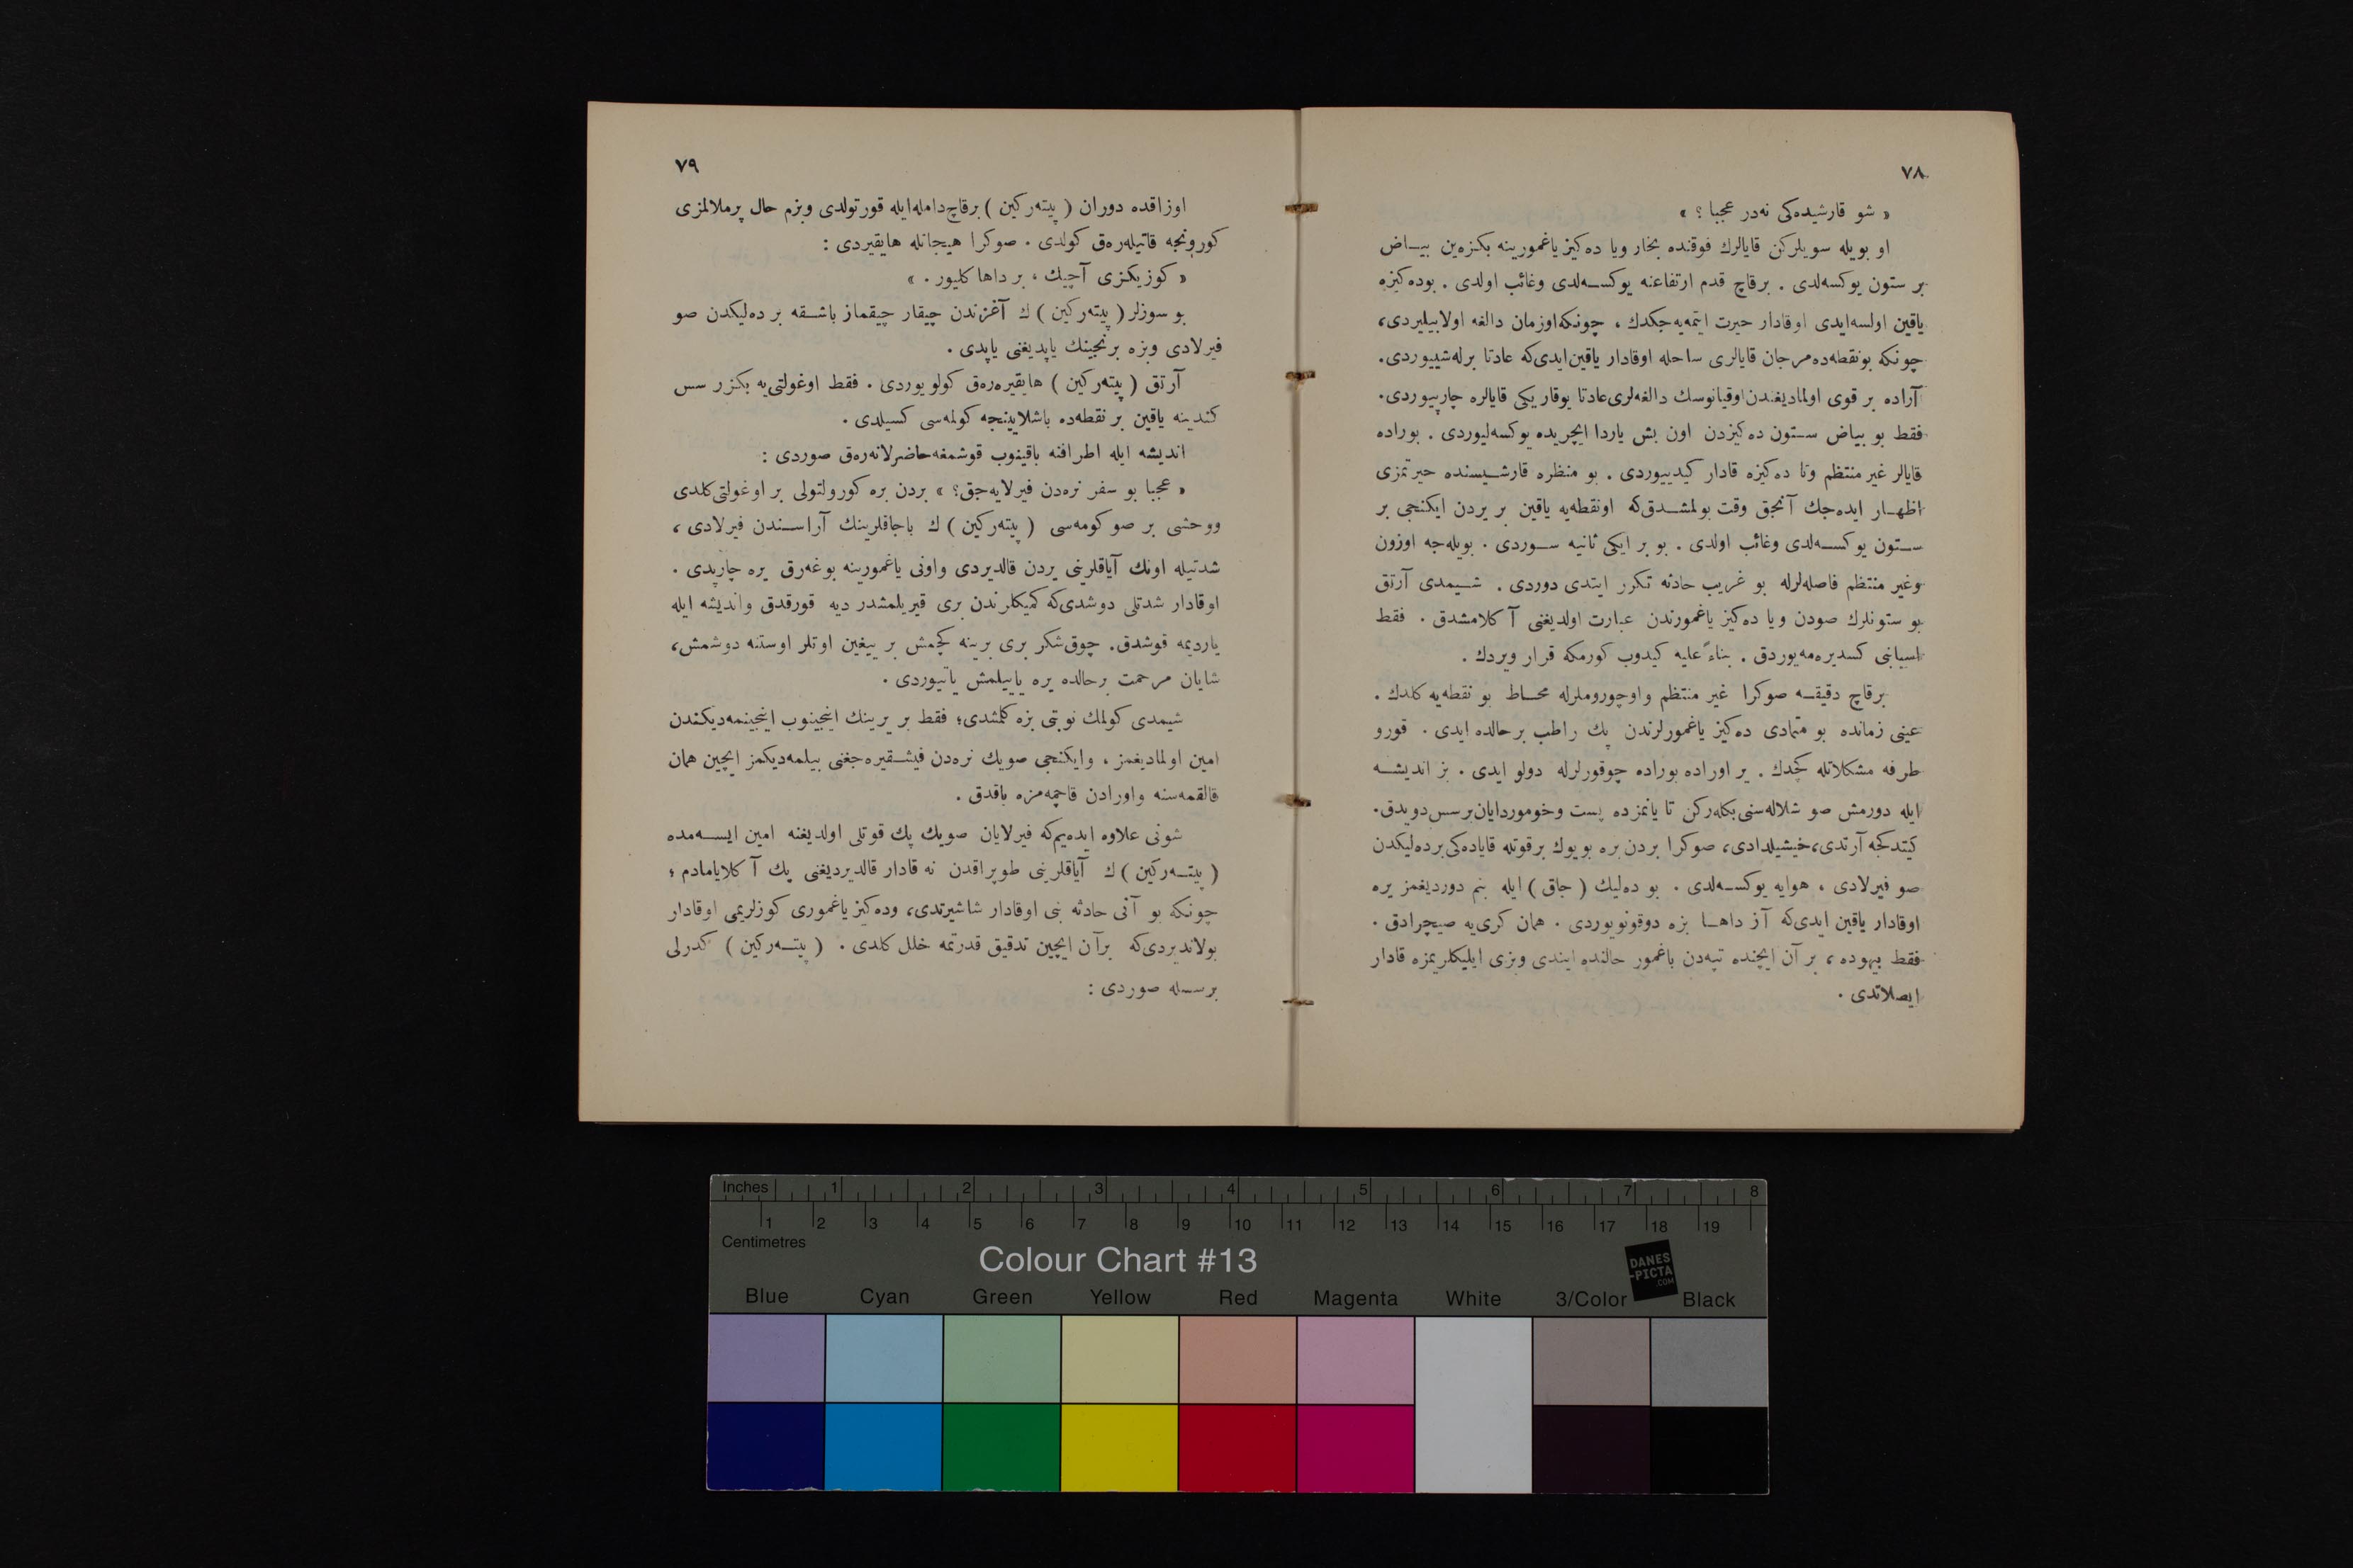 ٧٨
« شو قارشیده‌كی نه‌در عجبا ؟ »
او بویله سویلركن قایالرك فوقنده بخار ویا ده‌كیز یاغمورینه بكزه‌ین بیـاض
بر ستون یوكسه‌لدی . برقاچ قدم ارتفاعنه یوكســه‌لدی وغائب اولدی . بوده‌كیزه
یاقین اولسه‌ایدی اوقادار حیرت ایتمه‌یه‌جكدك ، چونكه‌اوزمان دالغه اولابیلیردی،
چونكه بونقطه‌ده‌مرجان قایالری ساحله اوقادار یاقین‌ایدی‌كه عادتا برله‌شییوردی.
آراده بر قوی اولمادیغندن‌اوقیانوسك دالغه‌لری‌عادتا یوقاریكی قایالره چارپییوردی.
فقط بو بیاض ستون ده‌كیزدن اون بش یاردا ایچریده یوكسه‌لیوردی . بوراده
قایالر غیر منتظم وتا ده‌كیزه قادار كیدییوردی . بو منظره قارشـیسنده حیرتمزی
اظهـار ایده‌جك آنجق وقت بولمشـدق‌كه اونقطه‌یه یاقین بر یردن ایكنجی بر
سـتون یوكســه‌لدی وغائب اولدی . بو بر ایكی ثانیه سـوردی . بویله‌جه اوزون
وغیر منتظم فاصله‌لرله بو غریب حادثه تكرر ایتدی دوردی . شـیمدی آرتق
بو ستونلرك صودن ویا ده‌كیز یاغمورندن عبارت اولدیغنی آ كلامشدق . فقط
اسبابنی كسدیره‌مه‌یوردق . بناءً علیه كیدوب كورمكه قرار ویردك .
برقاچ دقیقـه صوكرا غیر منتظم واوچوروملرله محـاط بو نقطه‌یه كلدك .
عینی زمانده بو متمادی ده‌كیز یاغمورلرندن پك راطب برحالده ایدی . قورو
طرفه مشكلاتله كچدك . یر اوراده بوراده چوقورلرله دولو ایدی . بز اندیشــه
ایله دورمش صو شلاله‌سنی‌بكله‌ركن تا یانمزده پست وخوموردایان‌برسس‌دویدق.
كیتدكجه آرتدی،خیشیلدادی، صوكرا بردن بره بویوك برقوتله قایاده‌كی‌برده‌لیكدن
صو فیرلادی ، هوایه یوكسـه‌لدی . بو ده‌لیك (جاق) ایله بنم دوردیغمز یره
اوقادار یاقین ایدی‌كه آز داهـا بزه دوقونویوردی . همان كری‌یه صیچرادق .
فقط بیهوده ، بر آن ایچنده تپه‌دن یاغمور حالنده ایندی وبزی ایلیكلریمزه قادار
ایصلاتدی .
٧٩
اوزاقده دوران ( پیته‌ركین ) برقاچ‌دامله‌ایله قورتولدی وبزم حال پرملالمزی
كورونجه قاتیله‌ره‌ق كولدی . صوكرا هیجانله هایقیردی :
« كوزیكزی آچیك ، بر داها كلیور . »
بو سوزلر ( پیته‌ركین ) ك آغزندن چیقار چیقماز باشـقه بر ده‌لیكدن صو
فیرلادی وبزه برنجینك یاپدیغنی یاپدی .
آرتق ( پیته‌ركین ) هایقیره‌ره‌ق كولویوردی . فقط اوغولتی‌یه بكزر سس
كندینه یاقین بر نقطه‌ده باشلاینجه كولمه‌سی كسیلدی .
اندیشه ایله اطرافنه باقینوب قوشمغه‌حاضرلانه‌ره‌ق صوردی :
« عجبا بو سفر نره‌دن فیرلایه‌جق؟ » بردن بره كورولتولی بر اوغولتی‌كلدی
ووحشی بر صو كومه‌سی ( پیته‌ركین ) ك باجاقلرینك آراسـندن فیرلادی ،
شدتیله اونك آیاقلرینی یردن قالدیردی واونی یاغمورینه بوغه‌رق یره چارپدی .
اوقادار شدتلی دوشدی‌كه كمیكلرندن بری قیریلمشدر دیه قورقدق واندیشه ایله
یاردیمه قوشدق. چوق‌شكر بری برینه كچمش بر ییغین اوتلر اوستنه دوشمش،
شایان مرحمت برحالده یره یاییلمش یاتیوردی .
شیمدی كولمك نوبتی بزه كلمشدی؛ فقط بر یرینك اینجینوب اینجینمه‌دیكندن
امین اولمادیغمز ، وایكنجی صویك نره‌دن فیشـقیره‌جغنی بیلمه‌دیكمز ایچین همان
قالقمه‌سنه واورادن قاچمه‌مزه باقدق .
شونی علاوه ایده‌یم‌كه فیرلایان صویك پك قوتلی اولدیغنه امین ایســه‌مده
( پیتـه‌ركین ) ك آیاقلرینی طوپراقدن نه قادار قالدیردیغنی پك آ كلایامادم ؛
چونكه بو آنی حادثه بنی اوقادار شاشیرتدی، وده‌كیز یاغموری كوزلریمی اوقادار
بولاندیردی‌كه برآن ایچین تدقیق قدرتمه خلل كلدی . ( پیتـه‌ركین ) كدرلی
برسسله صوردی :
Inches 1 2 3 4 5 6 7 8
1 2 3 4 5 6 7 8 9 10 11 12 13 14 15 16 17 18 19
Centimetres
Colour Chart #13
DANES
-PICTA
.COM
Blue Cyan Green Yellow Red Magenta White 3/Color Black